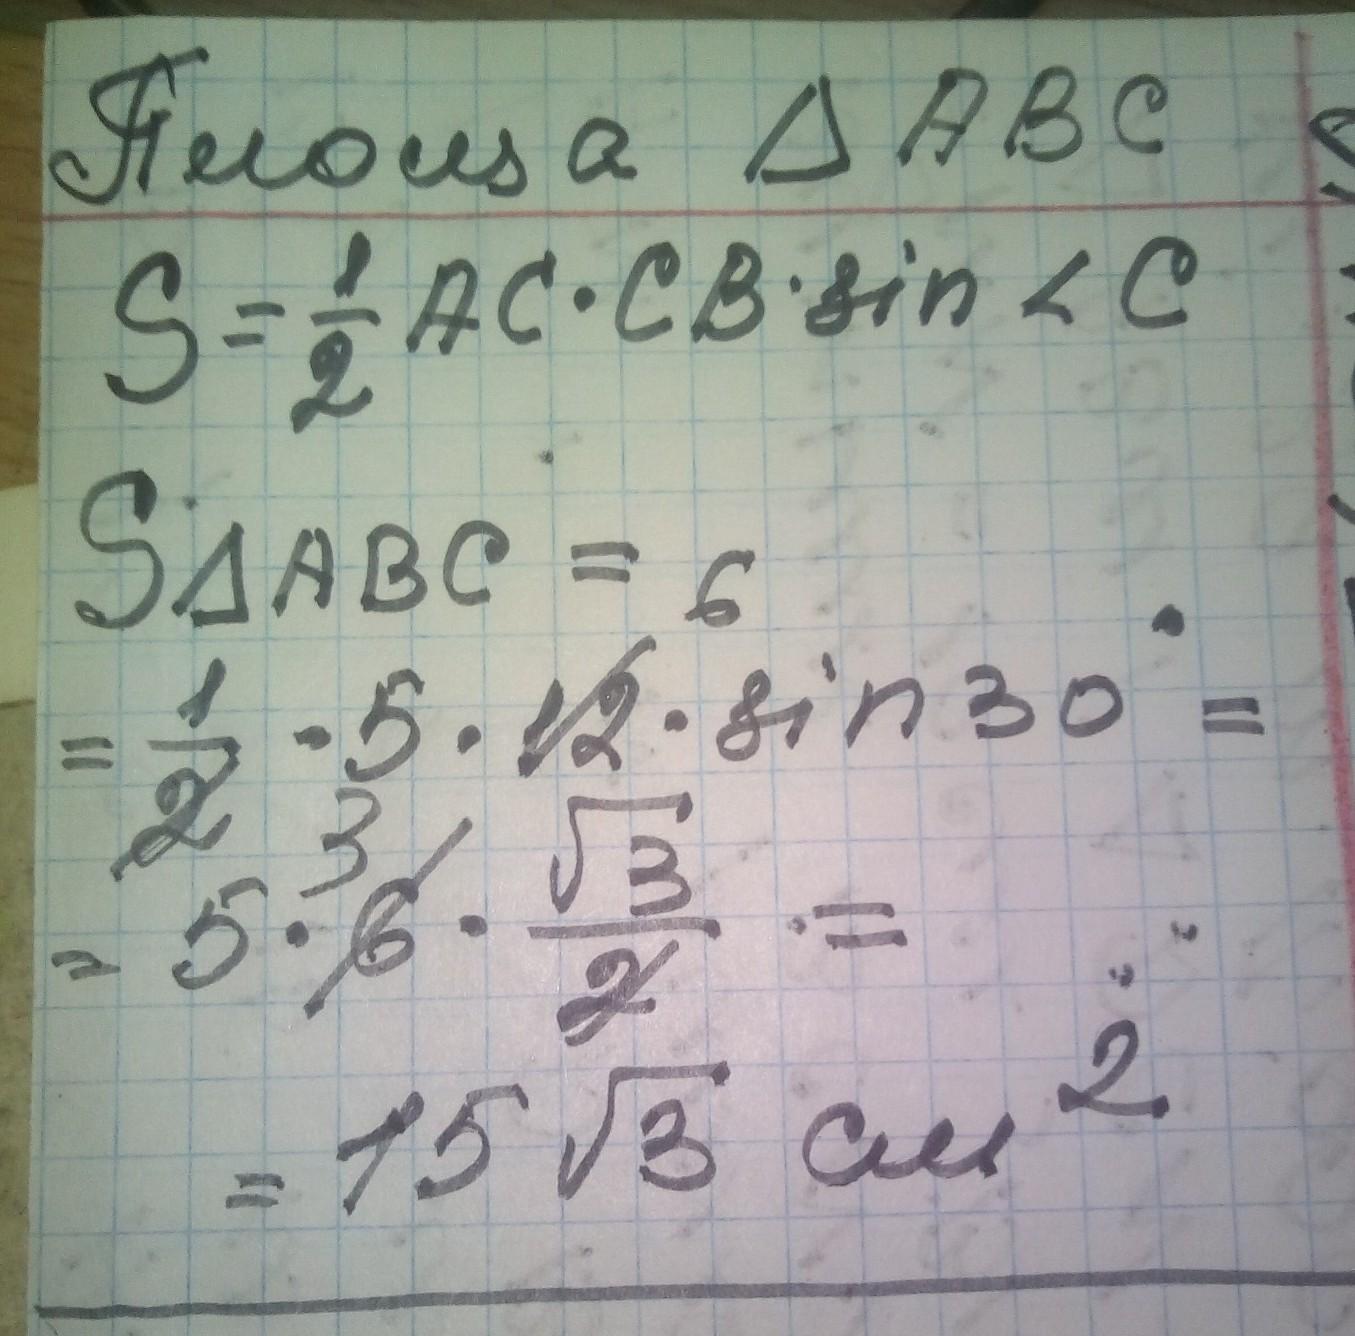 Площа △ ABC
S = 1/2 AC · CB · sin ∠C
S△ABC =
6
= 1/2 · 5 · 12 · sin 30° =
3
= 5 · 6 · √3/2 =
= 15 √3 см²